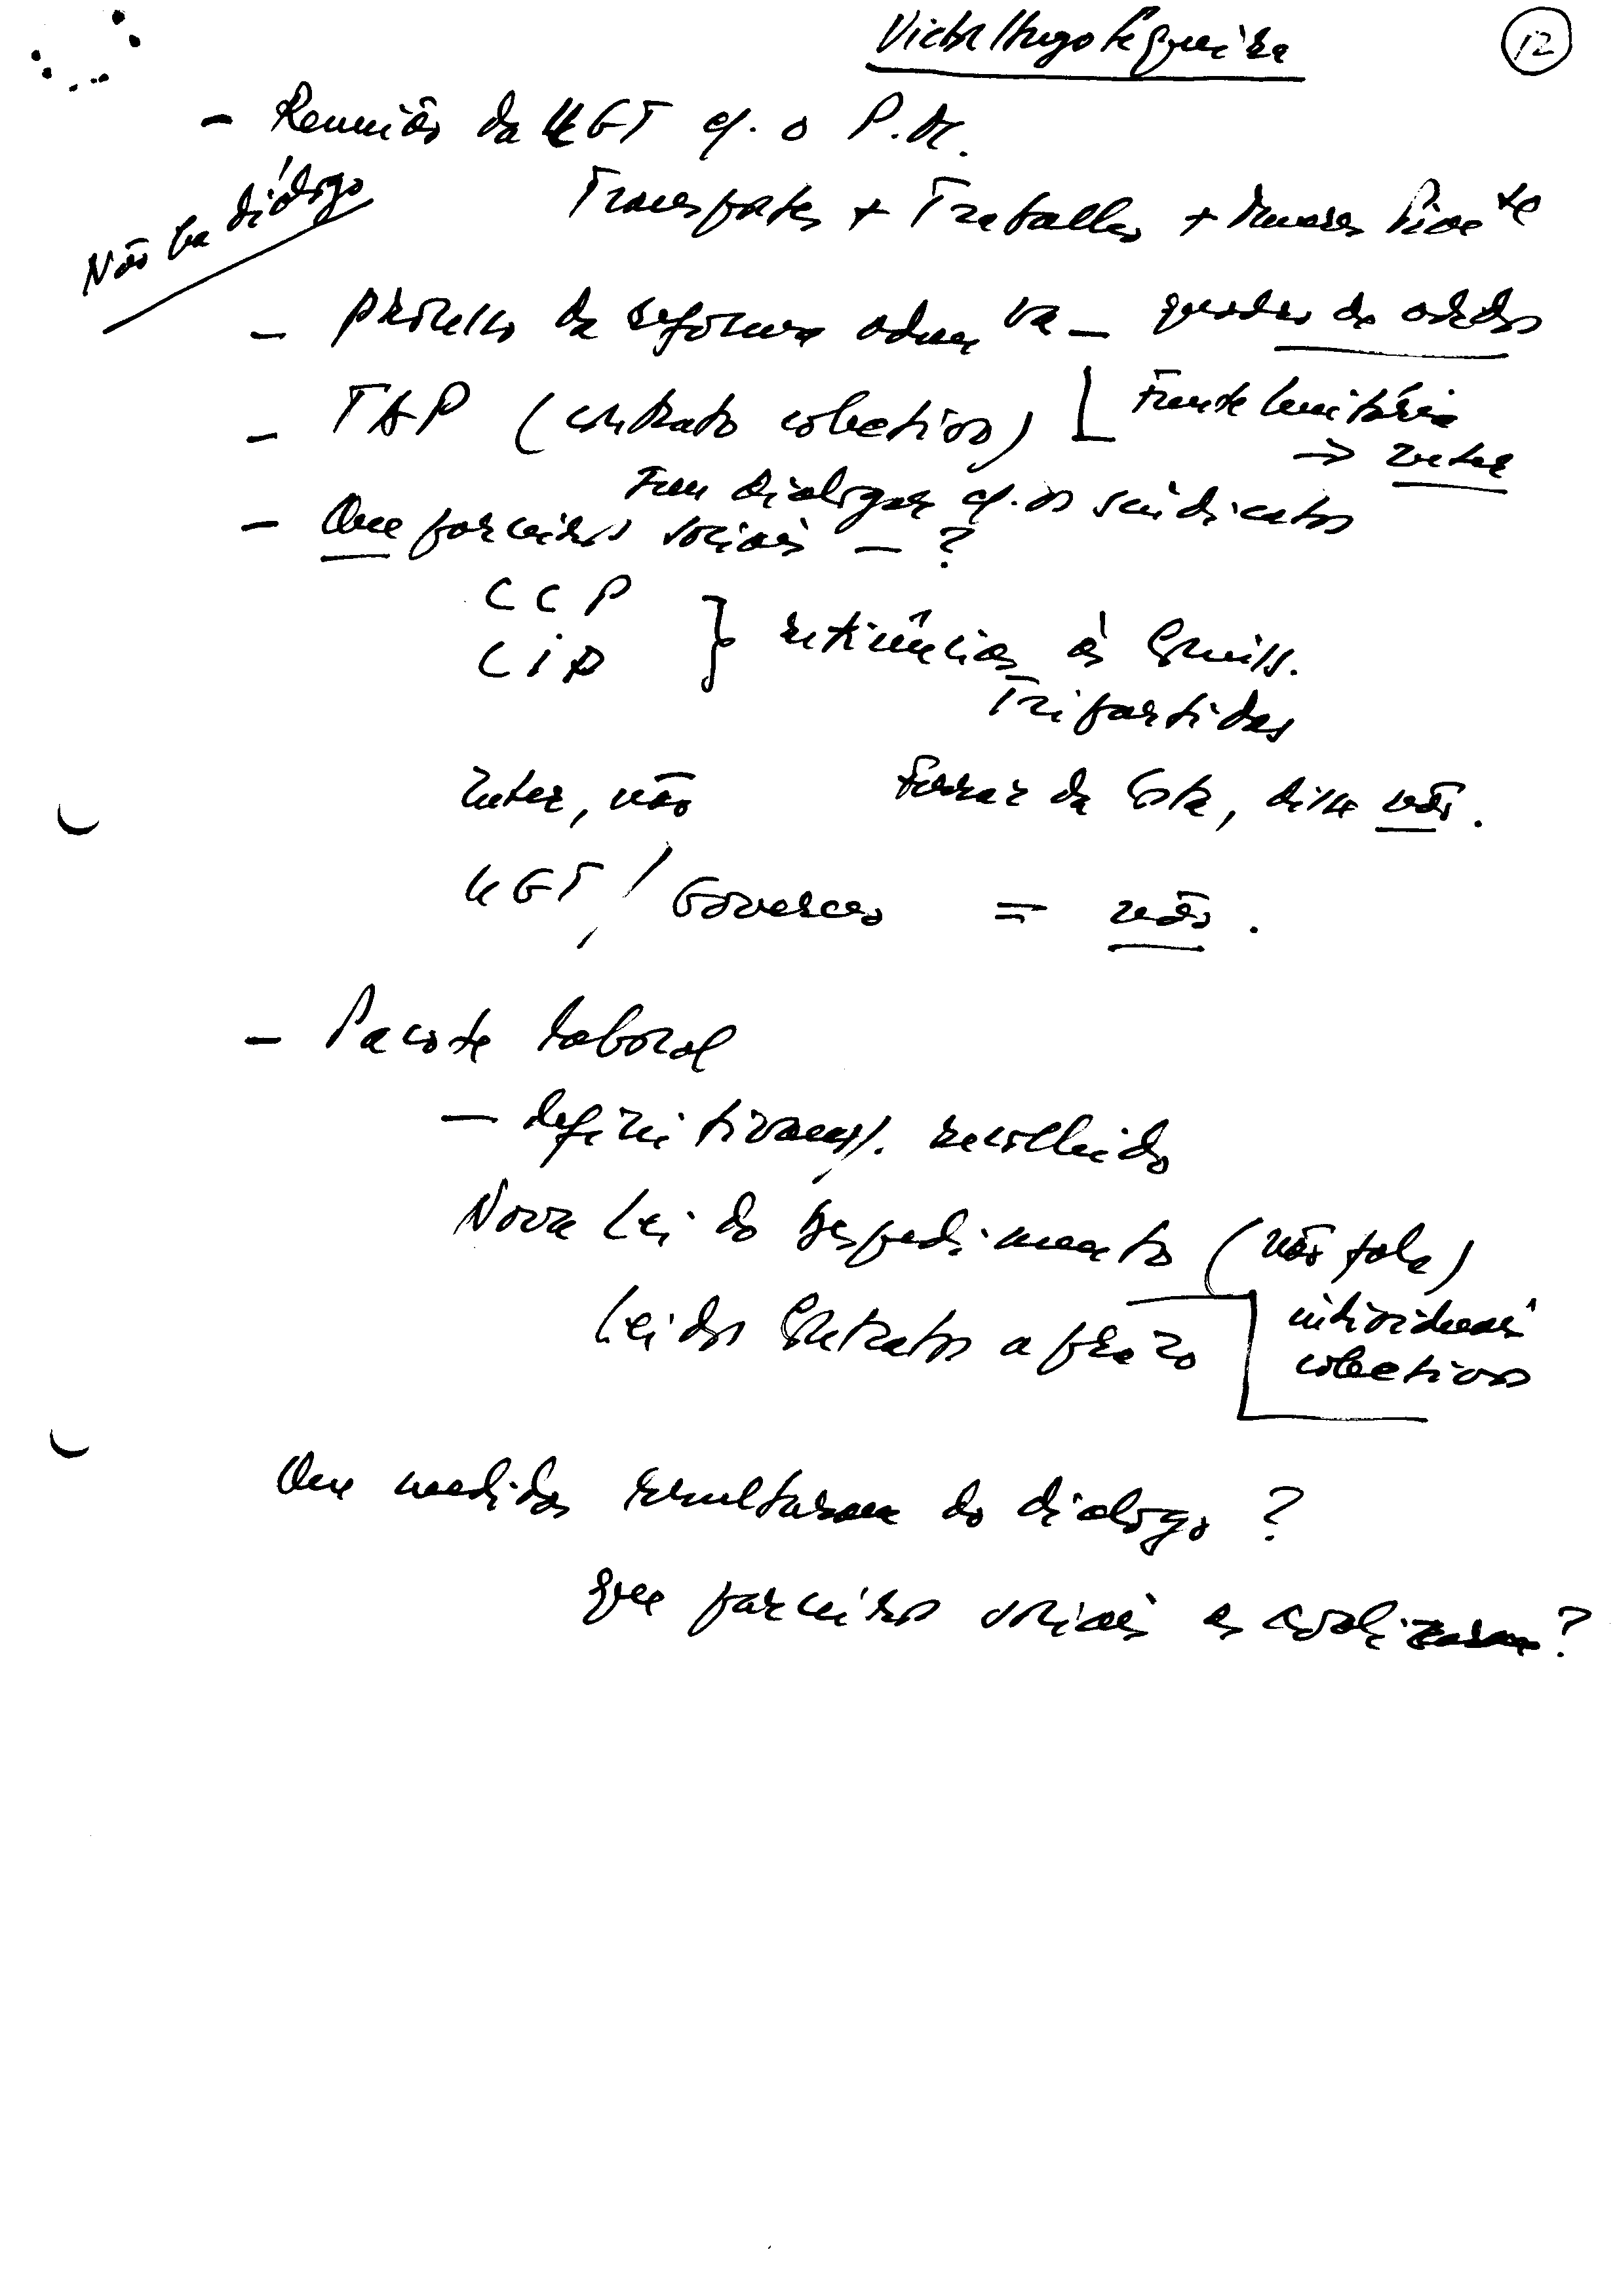 Victor Hugo Sequeira
12
- Reunião da UGT c/. o P.M.
Não há diálogo
Transportes + Trabalho +
- processo da reforma adm va - quadro de adidos
- TAP (contrato colectivo) Frente Unitária
→ Inter
dialogar c/. os sindicatos
- Que parceiros sociais - ?
CCP
CIP } reticências às Comiss.
Tripartidas
Inter, não Ferraz da Costa, disse não.
UGT / Governo = não.
- Pacote Laboral
- definitivam/. recolhido
Nova Lei do Despedimento (não fala)
Lei dos Contratos a prazo individuais
colectivos
Que medidas resultaram do dialogo ?
que parceiros sociais as avalizaram ?